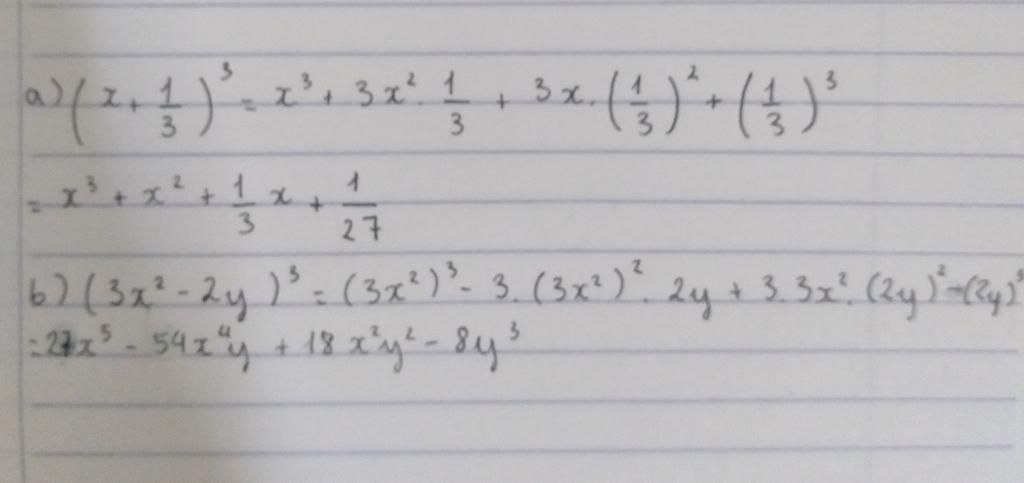 a) (x + 1/3)³ = x³ + 3x² . 1/3 + 3x . (1/3)² + (1/3)³
= x³ + x² + 1/3 x + 1/27
b) (3x² - 2y)³ = (3x²)³ - 3 . (3x²)² . 2y + 3 . 3x² . (2y)² - (2y)³
= 27x⁵ - 54x⁴y + 18x²y² - 8y³